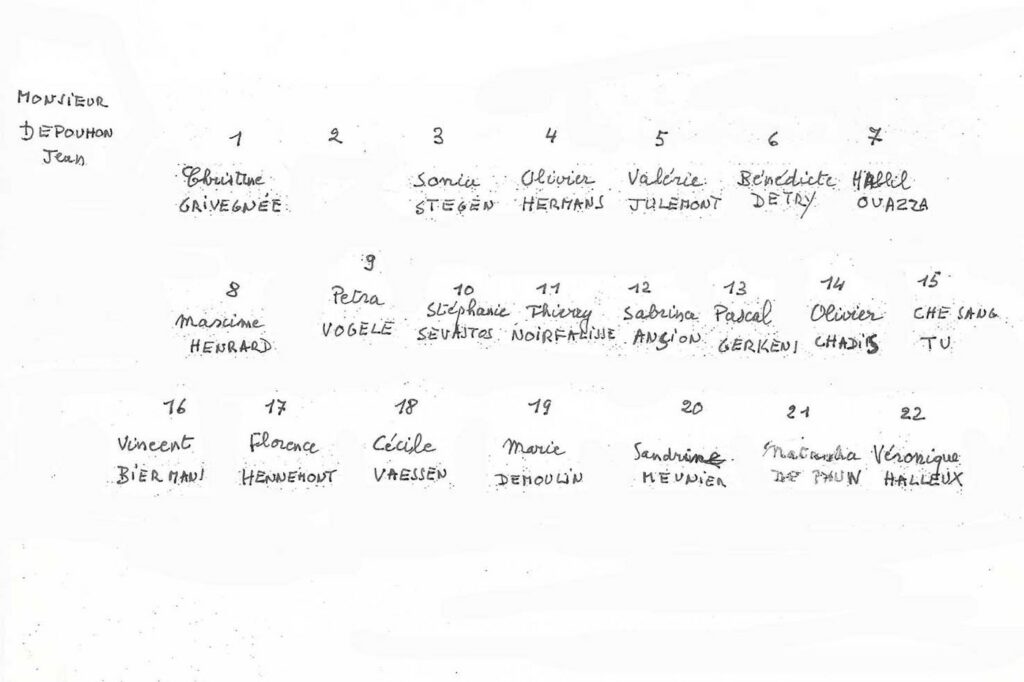 MONSIEUR
DEPOUHON
Jean
1 2 3 4 5 6 7
Christine Sonia Olivier Valérie Bénédicte HAllil
GRIVEGNÉE STEGEN HERMANS JULEMONT DETRY OUAZZA
8 9 10 11 12 13 14 15
Maxime Petra Stéphanie Thierry Sabrina Pascal Olivier CHE SANG
HENRARD VOGELE SEVASTOS NOIRFALISSE ANSION GERKENS CHADIS TU
16 17 18 19 20 21 22
Vincent Florence Cécile Marie Sandrine Véronique
BIERMANS HENNEMONT VAESSEN DEMOULIN MEUNIER HALLEUX